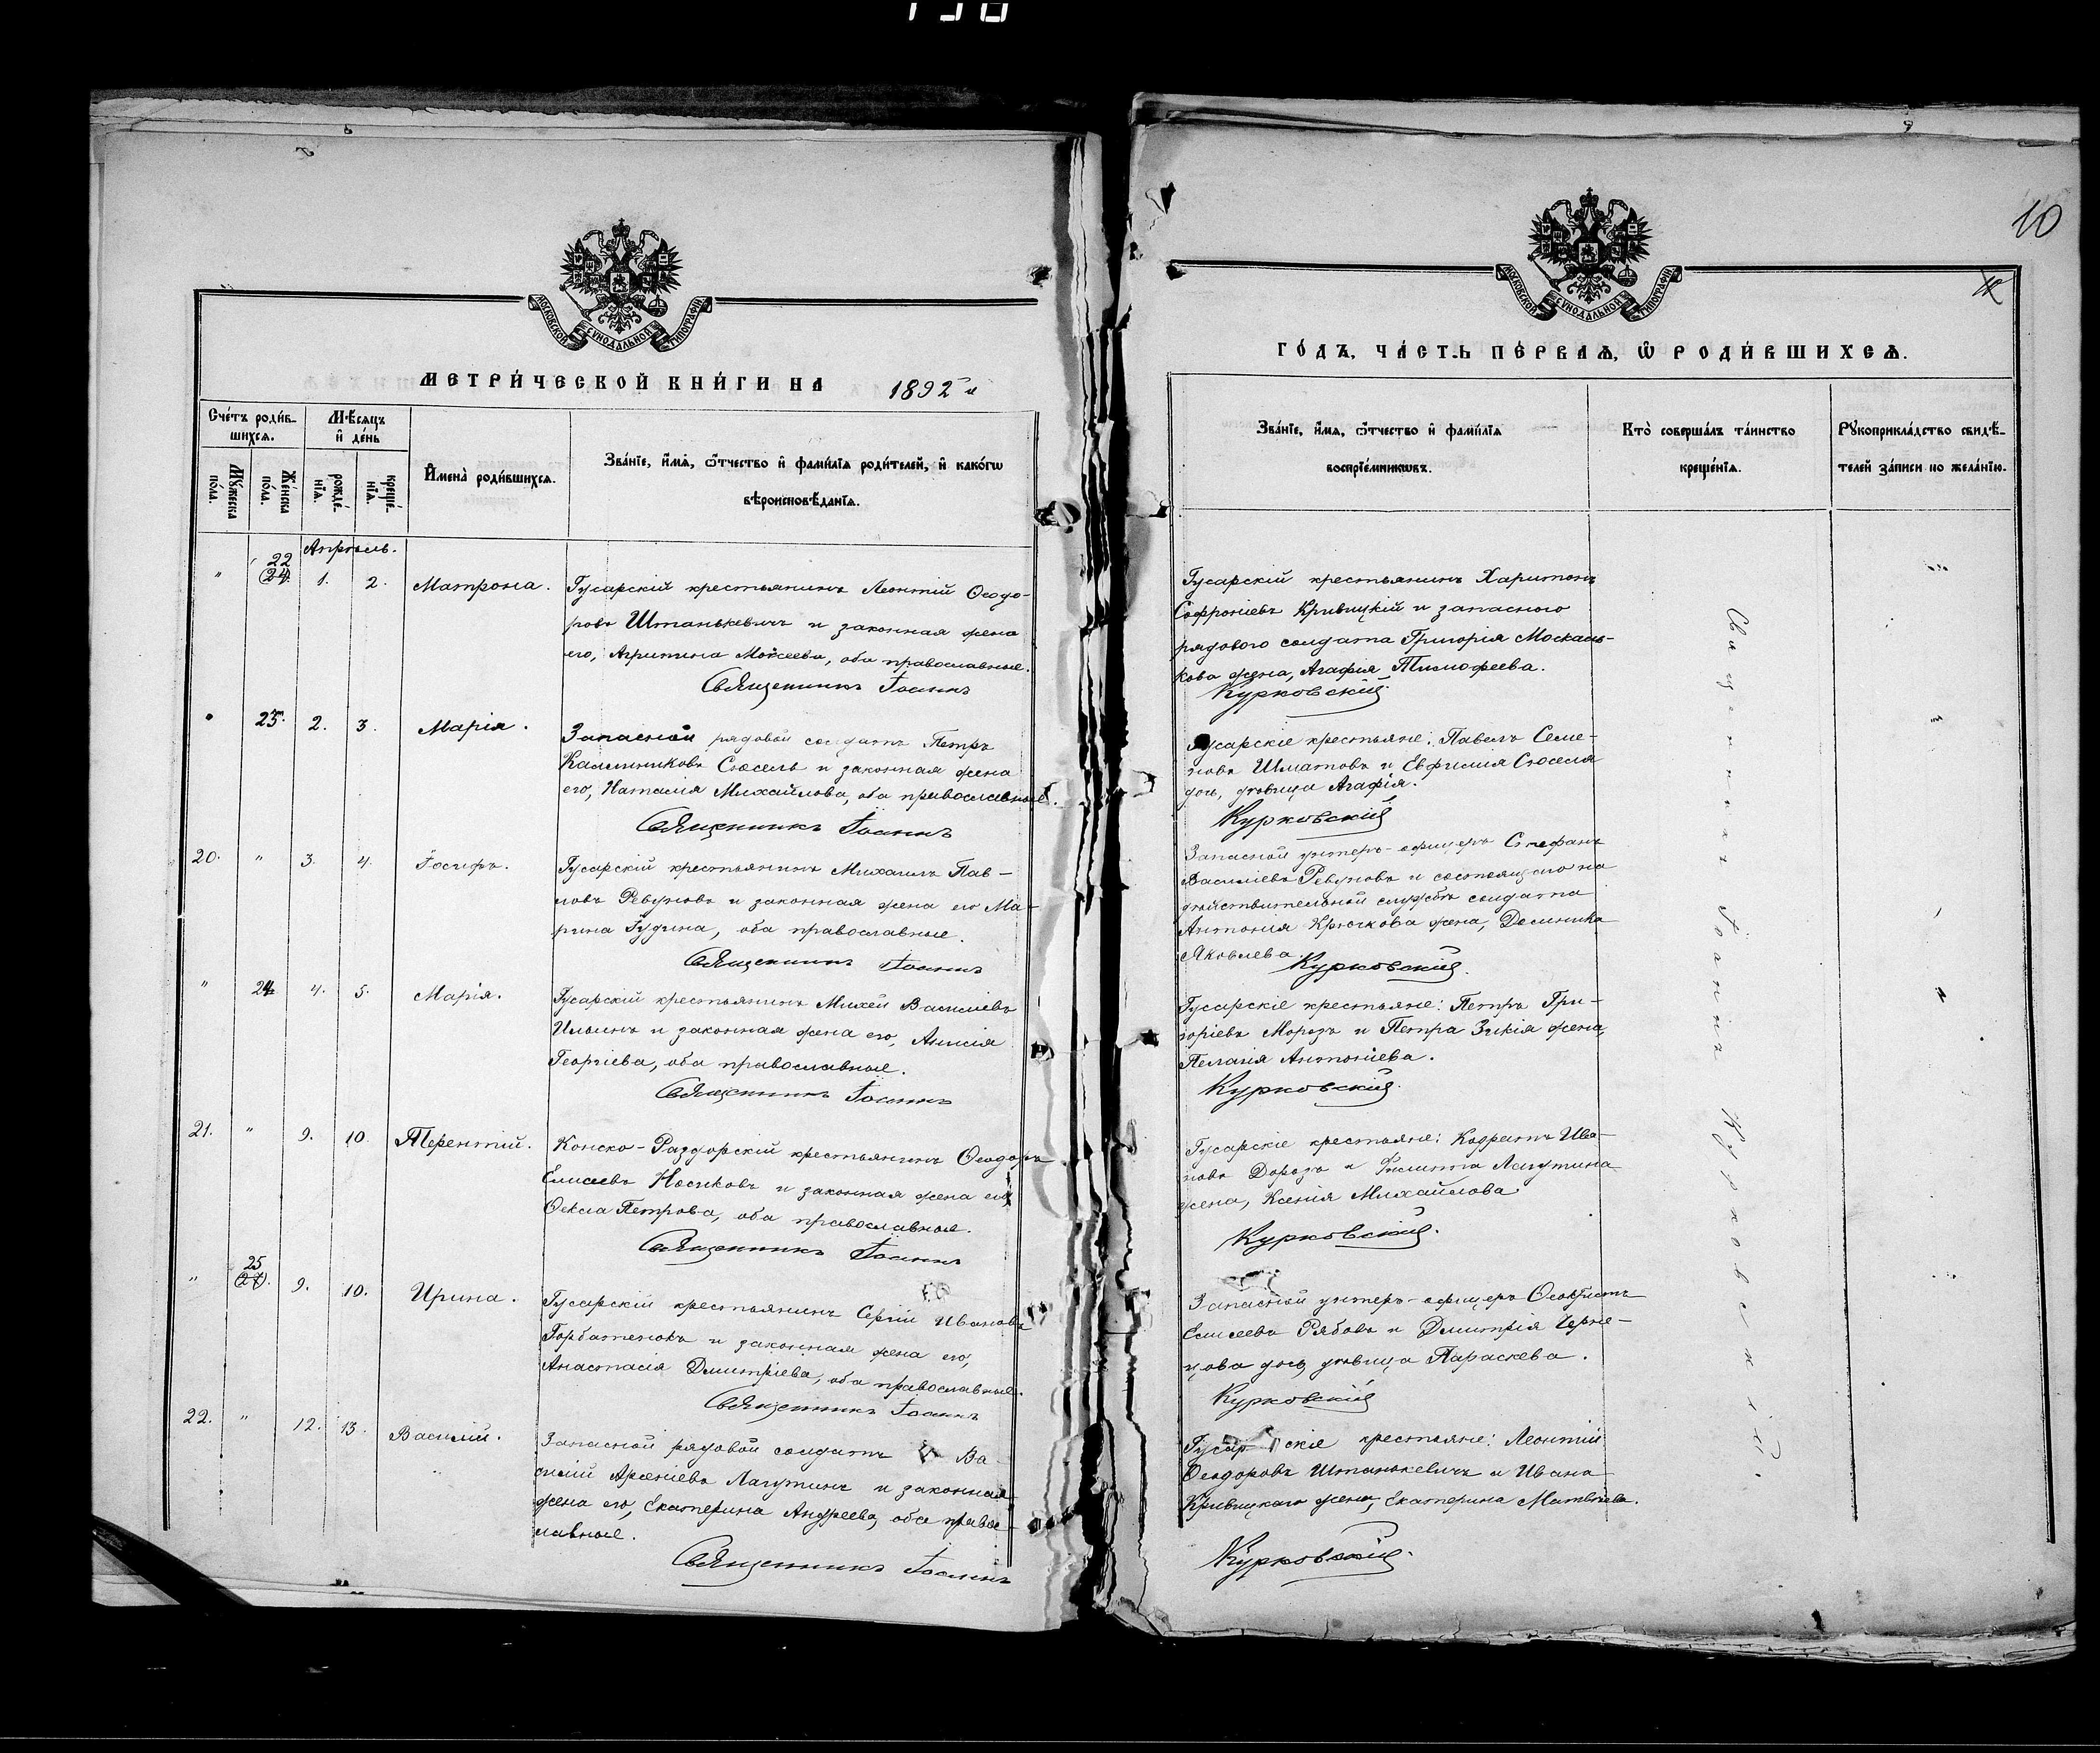 10
МОСКОВСКОЙ СУНОДАЛЬНОЙ ТИПОГРАФІИ
МЕТРИ́ЧЕСКОЙ КНИ́ГИ НА 1892 й
Сче́тъ роди́в-
шихсѧ.
Мѣ́сѧцъ
и҆ де́нь
Мꙋ́жеска
по́ла.
Же́нска
по́ла.
рожде́-
нїѧ.
креще́-
нїѧ.
И҆мена̀ роди́вшихсѧ.
Зва́нїе, и҆́мѧ, ѻ҆́тчество и҆ фами́лїѧ роди́телей, и҆ како́гѡ
вѣроисповѣ́данїѧ.
Апрѣль.
22
" (24). 1. 2. Матрона. Гусарскій крестьянинъ Леонтій Ѳеодо-
ровъ Штанькевичъ и законная жена
его, Агрипина Моѵсеева, оба православные.
Священникъ Іоаннъ
" 23. 2. 3. Марія. Запасной рядовой солдатъ Петръ
Калинниковъ Сюсель и законная жена
его, Наталія Михайлова, оба православные.
Священникъ Іоаннъ
20. " 3. 4. Іосифъ. Гусарскій крестьянинъ Михаилъ Пав-
ловъ Ревуновъ и законная жена его Ма-
рина Іудина, оба православные.
Священникъ Іоаннъ
" 24 4. 5. Марія. Гусарскій крестьянинъ Михей Василіевъ
Ильинъ и законная жена его, Анисія
Георгіева, оба православные.
Священникъ Іоаннъ
21. " 9. 10. Терентій. Конско-Раздорскій крестьянинъ Ѳеодоръ
Елисеевъ Носиковъ и законная жена его,
Ѳекла Петрова, оба православные.
Священникъ Іоаннъ
25
" (27). 9. 10. Ирина. Гусарскій крестьянинъ Сергій Ивановъ
Горбатенокъ и законная жена его,
Анастасія Димитріева, оба православные.
Священникъ Іоаннъ
22. " 12. 13. Василій. Запасной рядовой солдатъ Ва-
силій Арсеніевъ Лагутинъ и законная
жена его, Екатерина Андреева, оба право-
славные.
Священникъ Іоаннъ
МОСКОВСКОЙ СУНОДАЛЬНОЙ ТИПОГРАФІИ
ГО́ДЪ, ЧА́СТЬ ПЕ́РВАѦ, Ѡ҆ РОДИ́ВШИХСѦ.
Зва́нїе, и҆́мѧ, ѻ҆́тчество и҆ фами́лїѧ
воспрїе́мникѡвъ.
Кто̀ соверша́лъ та́инство
креще́нїѧ.
Рꙋкоприкла́дство свидѣ́-
телей за́писи по жела́нїю.
Гусарскій крестьянинъ Харитонъ
Софроніевъ Кривицкій и запасного
рядового солдата Григорія Москаль-
кова жена, Агафія Тимофеева.
Курковскій.
Гусарскіе крестьяне: Павелъ Семе-
новъ Шматовъ и Евфимія Сюселя
дочь, дѣвица Агафія.
Курковскій
Запасной унтеръ-офицеръ Стефанъ
Василіевъ Ревуновъ и состоящаго на
дѣйствительной службѣ солдата
Антонія Крючкова жена, Домника
Яковлева.
Курковскій.
Гусарскіе крестьяне: Петръ Гри-
горіевъ Морозъ и Петра Зикія жена,
Пелагія Антоніева.
Курковскій.
Гусарскіе крестьяне: Кодратъ Ива-
новъ Дорозъ и Филиппа Лагутина
жена, Ксенія Михайлова.
Курковскій.
Запасной унтеръ-офицеръ Ѳеоктистъ
Елисеевъ Рябовъ и Димитрія Черне-
цова дочь, дѣвица Параскева.
Курковскій
Гусарскіе крестьяне: Леонтій
Ѳеодоровъ Штанькевичъ и Ивана
Кривицкаго жена, Екатерина Матвѣева.
Курковскій.
Священникъ Іоаннъ Курковскій.